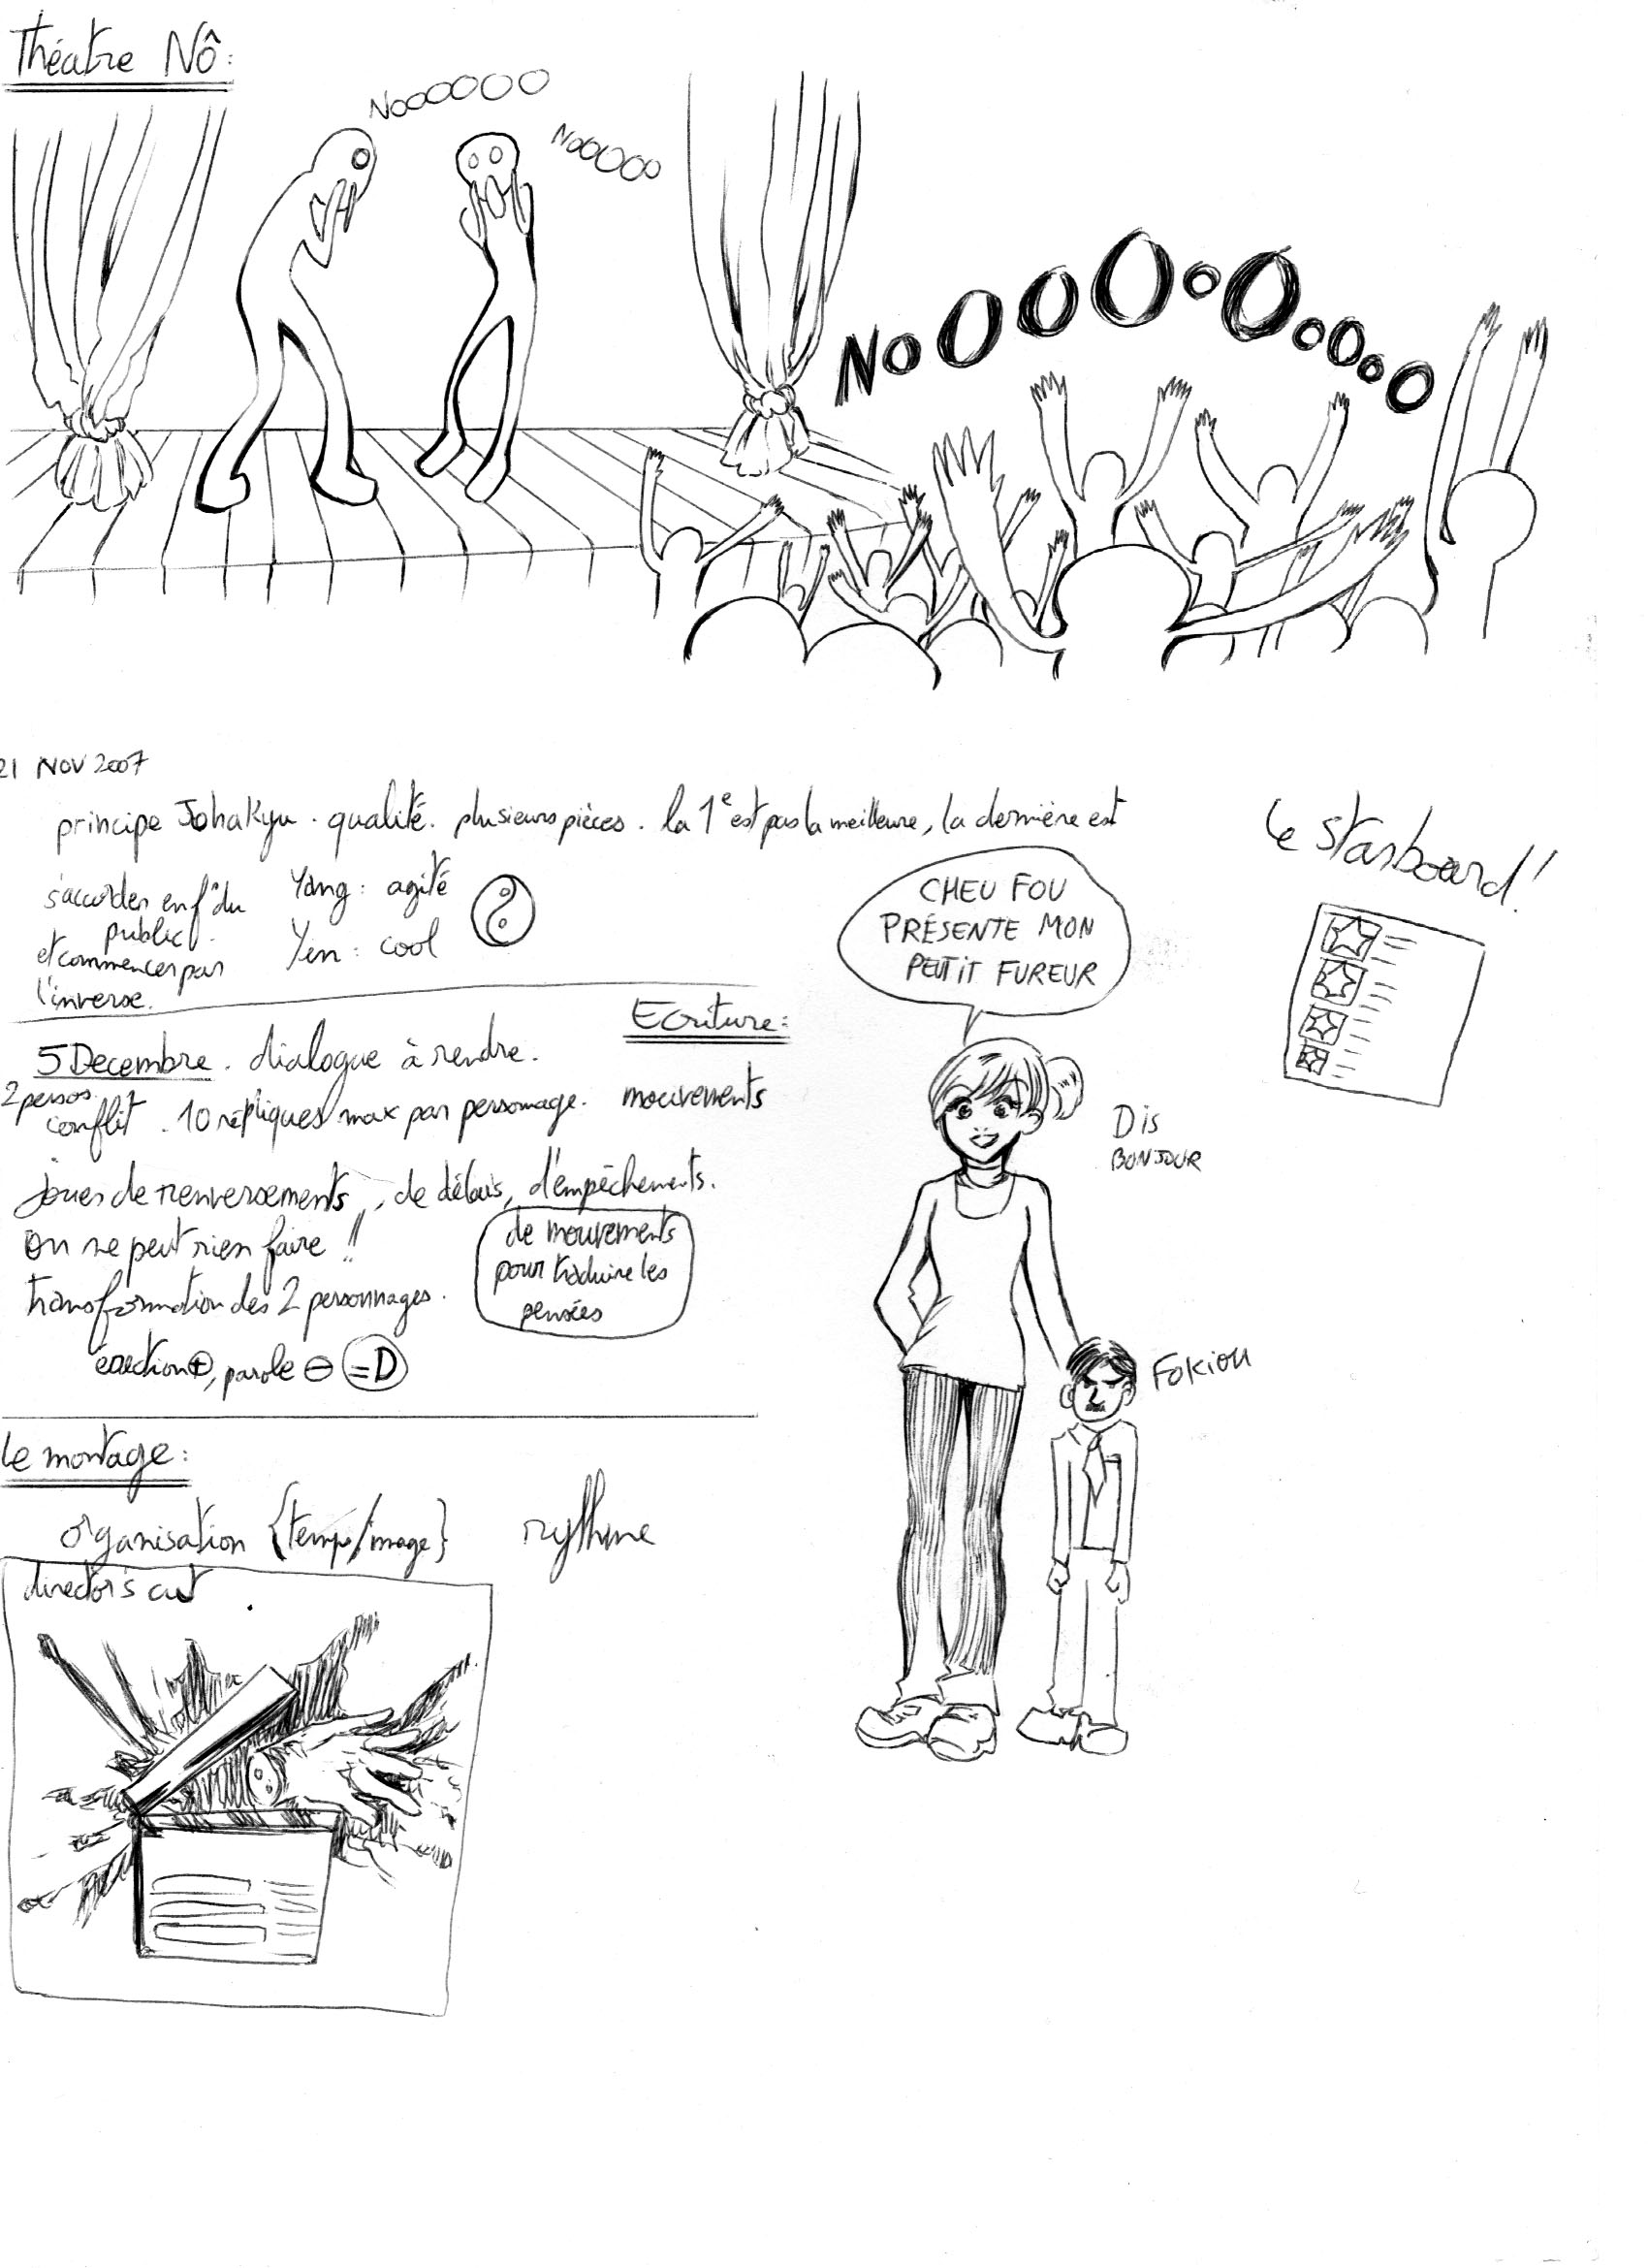 Théatre Nô:
NOOOOOO
NOOOOOO
NOOOOOOOOOO
21 NOV 2007
principe JohaKyu. qualité. plusieurs pièces. la 1e est pas la meilleure, la dernière est
s'accorder en f° du
public.
et commencer par
l'inverse.
Yang: agité
Yen: cool
Le starboard!
CHEU FOU
PRÉSENTE MON
PEUTIT FUREUR
Ecriture:
5 Decembre. dialogue à rendre.
2 persos.
conflit. 10 répliques max par personnage. mouvements
jouer de renversements, de délais, d'empêchements.
on ne peut rien faire!!
transformation des 2 personnages.
de mouvements
pour traduire les
pensées
action+, parole - =D
DIS
BONJOUR
FOKIOU
Le montage:
organisation {temps/image} rythme
director's cut